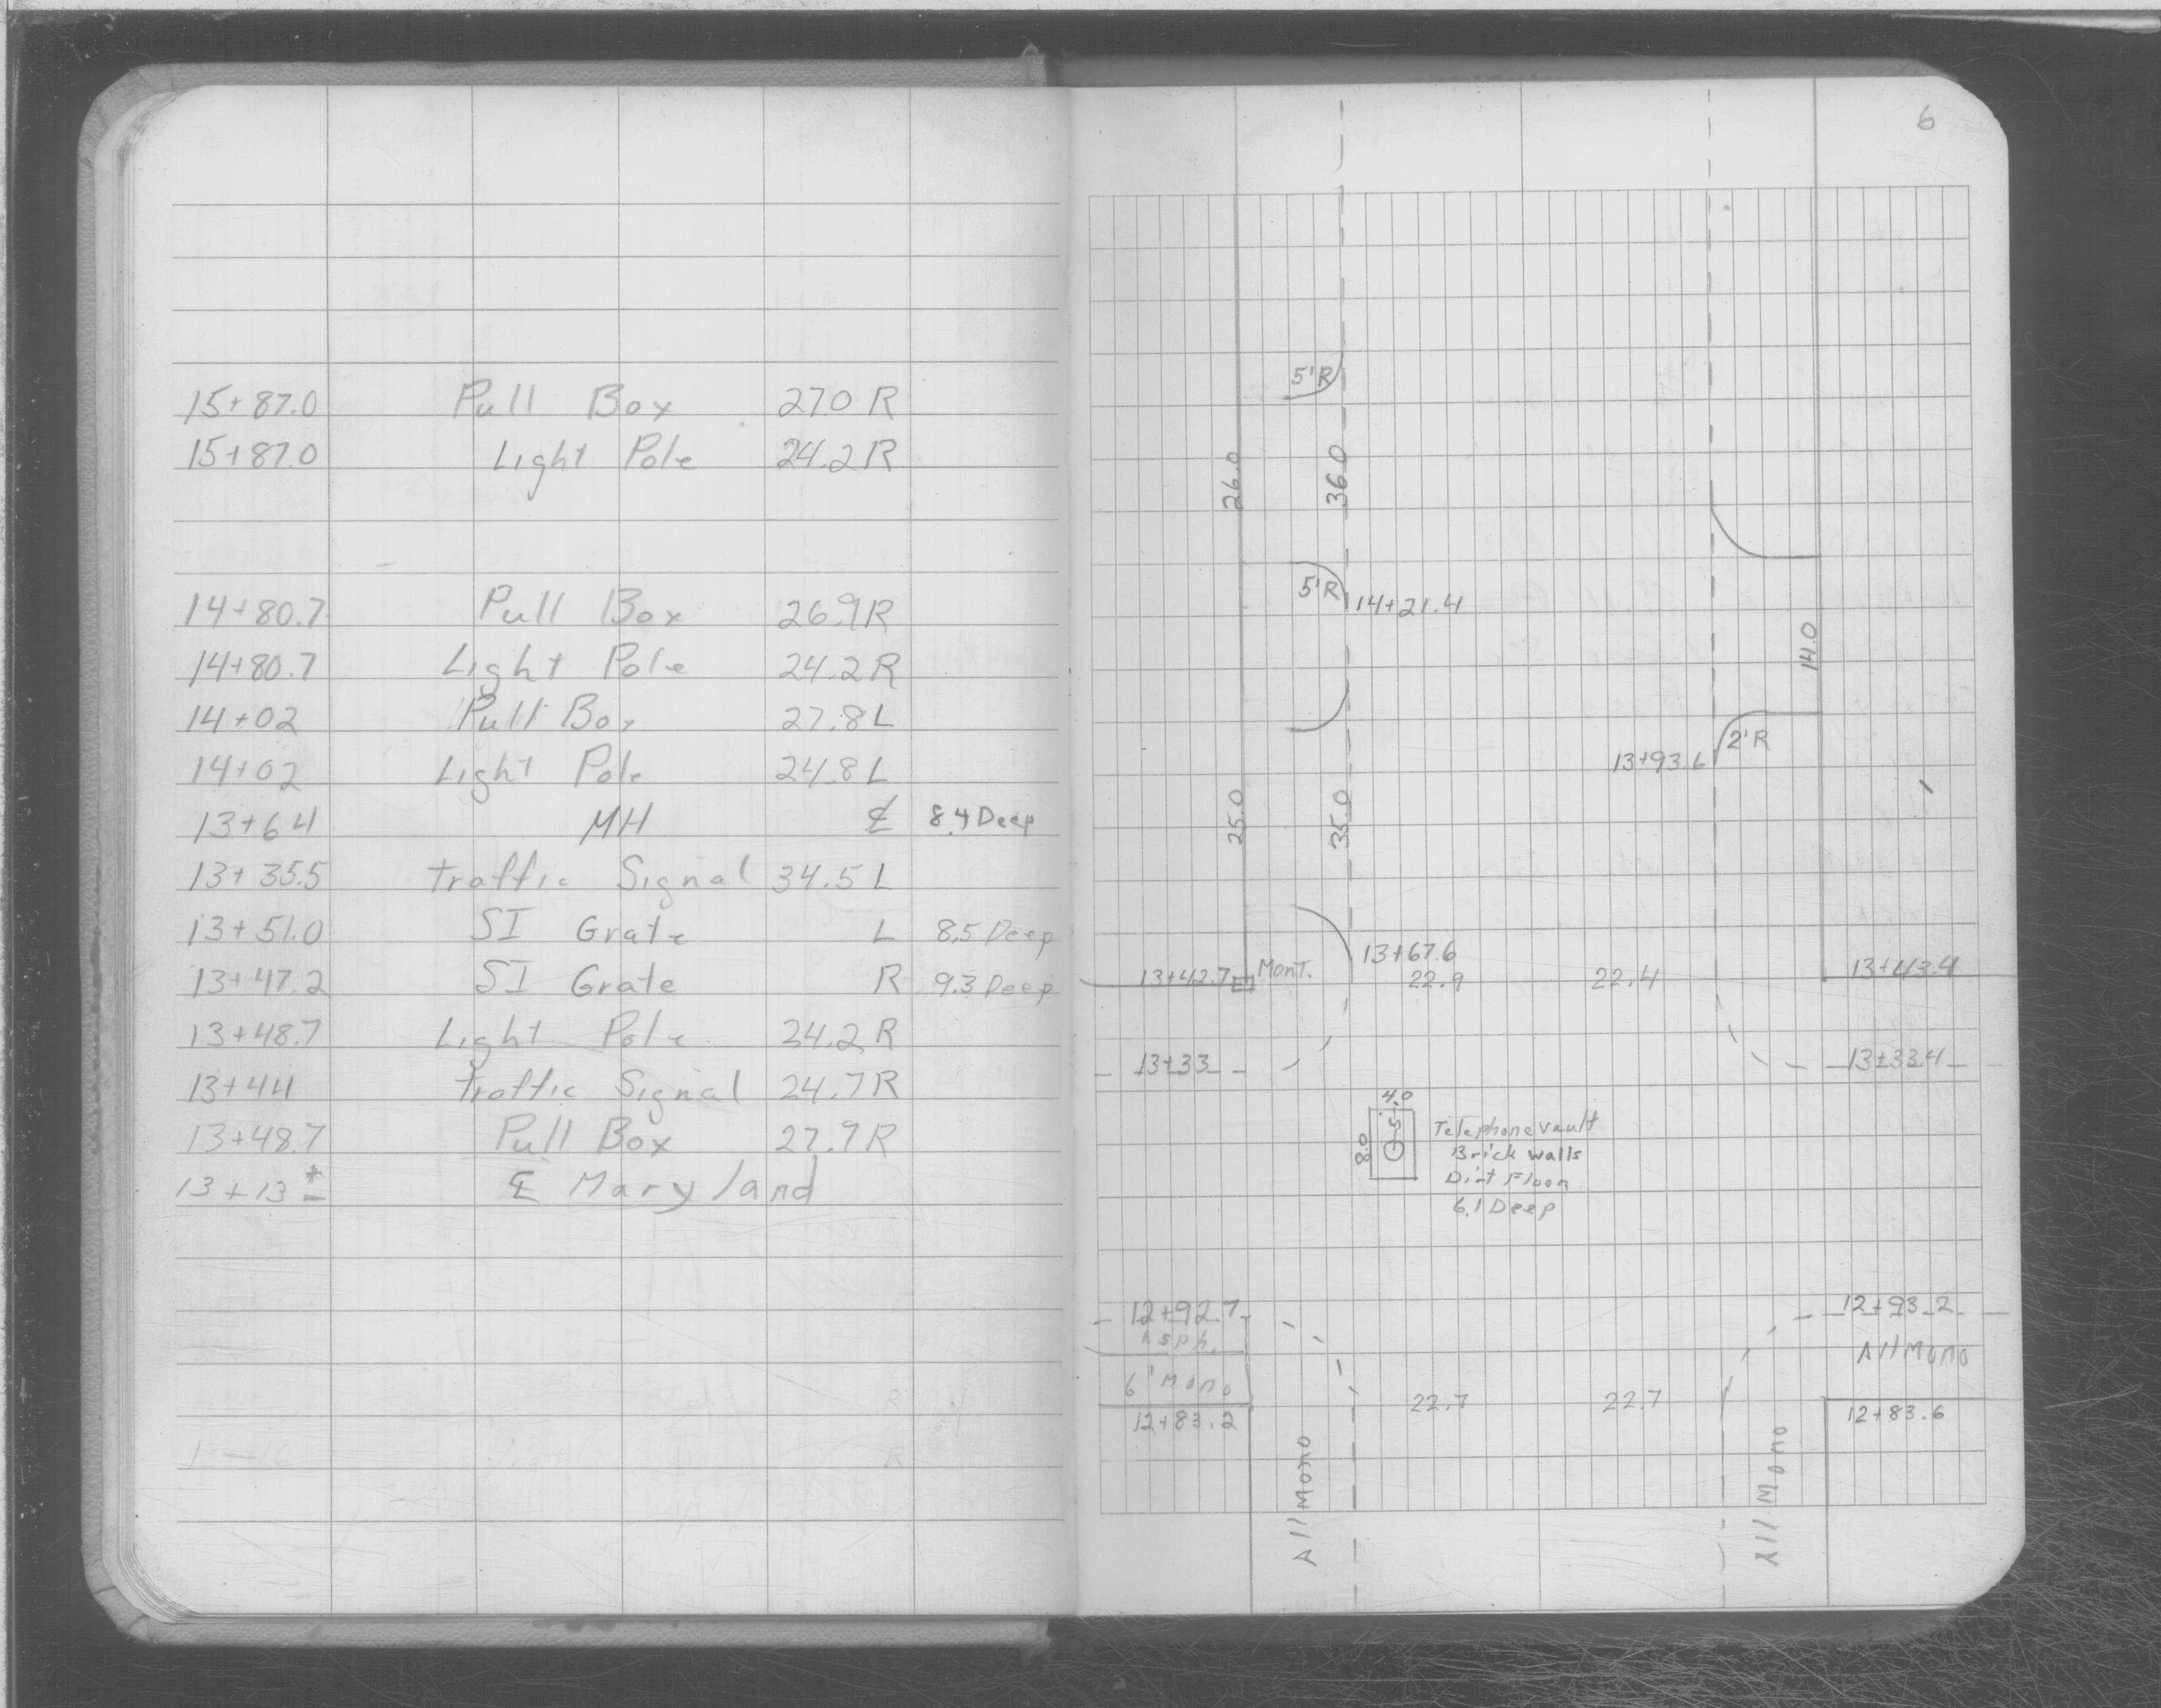 15+87.0 Pull Box 270 R
15+87.0 Light Pole 24.2 R
14+80.7 Pull Box 26.9 R
14+80.7 Light Pole 24.2 R
14+02 Pull Box 27.8 L
14+02 Light Pole 24.8 L
13+64 MH ℄ 8.4 Deep
13+35.5 traffic Signal 34.5 L
13+51.0 SI Grate L 8.5 Deep
13+47.2 SI Grate R 9.3 Deep
13+48.7 Light Pole 24.2 R
13+44 traffic Signal 24.7 R
13+48.7 Pull Box 27.7 R
13+13 ± ℄ Maryland
6
5'R
26.0 36.0
5'R 14+21.4
14.0
2'R
13+93.6
25.0 35.0
13+67.6
13+42.7 Mont. 22.9 22.4 13+43.4
13+33 13+33.4
4.0
8.0 .5 Telephone Vault
Brick walls
Dirt Floor
6.1 Deep
12+92.7 12+93.2
Asph.
All Mono
6' Mono
22.7 22.7
12+83.2 12+83.6
All Mono All Mono